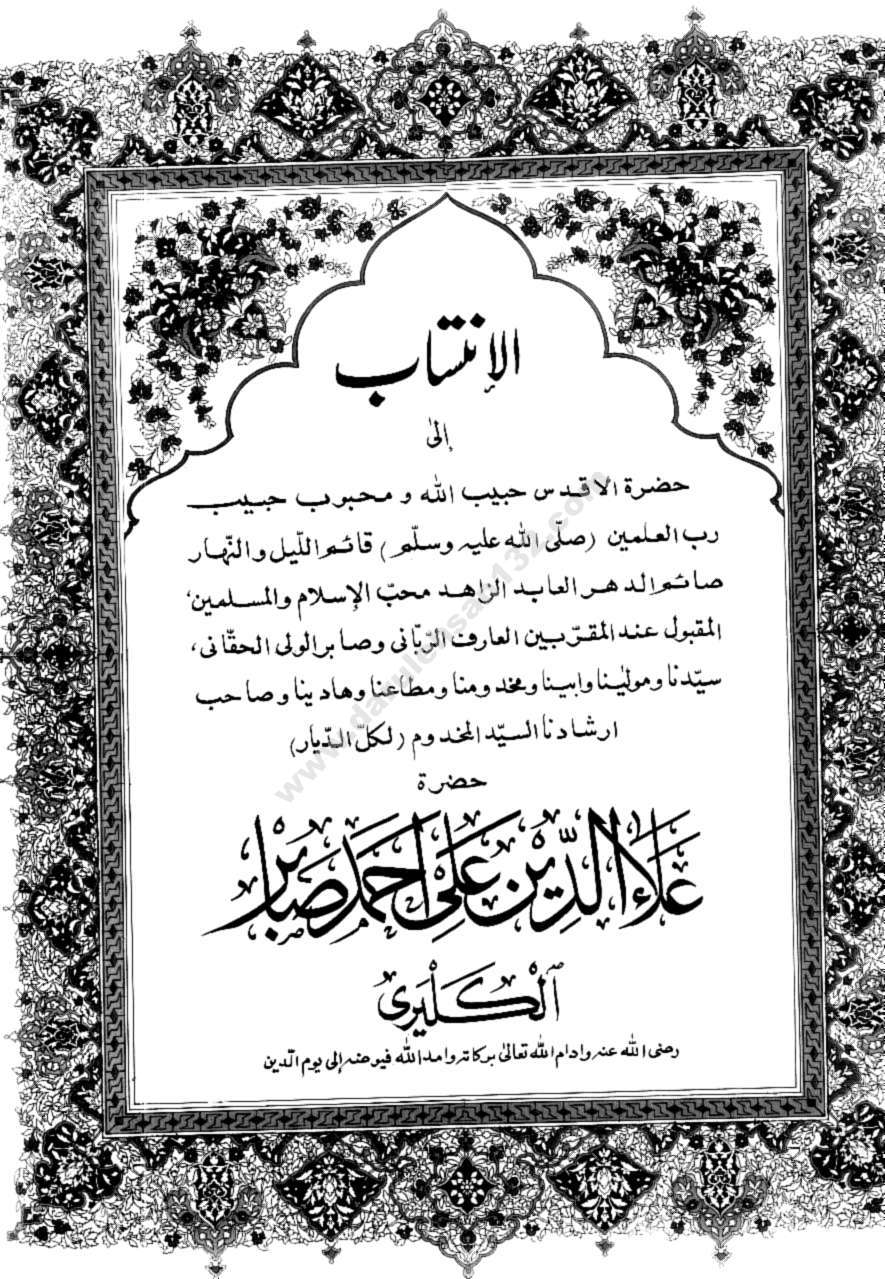 الإنتساب
إلىٰ
حضرة الاقدس حبيب الله و محبوب حبيب
رب العلمين (صلّى الله عليه وسلّم) قائم اللّيل والنّهار
صائم الدهر العابد الزاهد محبّ الإسلام والمسلمين،
المقبول عند المقرّبين العارف الرّبّانى وصابر الولى الحقّانى،
سيّدنا ومولٰينا وابينا ومخدومنا ومطاعنا وهادينا وصاحب
ارشادنا السيّد المخدوم (لكلّ الدّيار)
حضرة
عَلَاءُ الدِّيْن عَلِى اَحْمَد صَابِرْ
اَلْكَلْيَرِىْ
رضى الله عنه وادام الله تعالىٰ بركاته وامد الله فيوضه إلى يوم الدّين